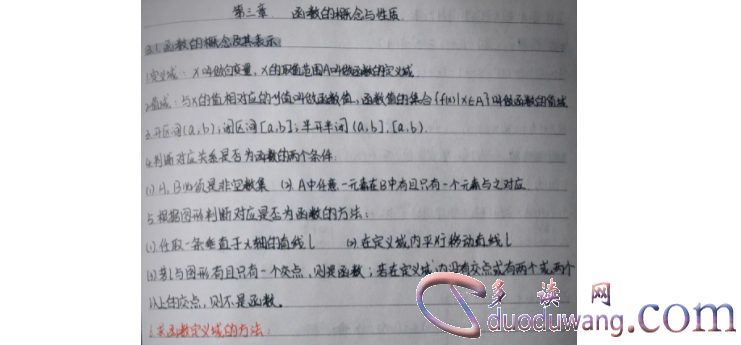 第三章 函数的概念与性质
3.1 函数的概念及其表示
1.定义域：x叫做自变量，x的取值范围A叫做函数的定义域
2.值域：与x的值相对应的y值叫做函数值，函数值的集合{f(x)|x∈A}叫做函数的值域
3.开区间(a,b)；闭区间[a,b]；半开半闭(a,b],[a,b)
4.判断对应关系是否为函数的两个条件
(1)A、B必须是非空数集 (2)A中任意一元素在B中有且只有一个元素与之对应
5.根据图形判断对应是否为函数的方法：
(1)任取一条垂直于x轴的直线l (2)在定义域内平行移动直线l
(3)若l与图形有且只有一个交点，则是函数；若在定义域内没有交点或有两个或两个
以上的交点，则不是函数。
6.求函数定义域的方法：
多读网
duoduwang.com